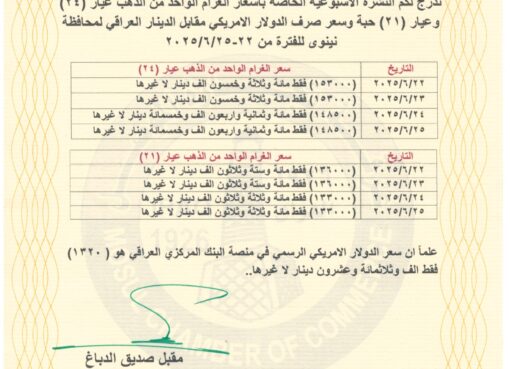 ندرج لكم النشرة الاسبوعية الخاصة باسعار الغرام الواحد من الذهب عيار (٢٤)
وعيار (٢١) حبة وسعر صرف الدولار الامريكي مقابل الدينار العراقي لمحافظة
نينوى للفترة من ٢٢-٢٠٢٥/٦/٢٥
التاريخ سعر الغرام الواحد من الذهب عيار (٢٤)
٢٠٢٥/٦/٢٢ (١٥٣٠٠٠) فقط مائة وثلاثة وخمسون الف دينار لا غيرها
٢٠٢٥/٦/٢٣ (١٥٣٠٠٠) فقط مائة وثلاثة وخمسون الف دينار لا غيرها
٢٠٢٥/٦/٢٤ (١٤٨٥٠٠) فقط مائة وثمانية واربعون الف وخمسمائة دينار لا غيرها
٢٠٢٥/٦/٢٥ (١٤٨٥٠٠) فقط مائة وثمانية واربعون الف وخمسمائة دينار لا غيرها
التاريخ سعر الغرام الواحد من الذهب عيار (٢١)
٢٠٢٥/٦/٢٢ (١٣٦٠٠٠) فقط مائة وستة وثلاثون الف دينار لا غيرها
٢٠٢٥/٦/٢٣ (١٣٦٠٠٠) فقط مائة وستة وثلاثون الف دينار لا غيرها
٢٠٢٥/٦/٢٤ (١٣٣٠٠٠) فقط مائة وثلاثة وثلاثون الف دينار لا غيرها
٢٠٢٥/٦/٢٥ (١٣٣٠٠٠) فقط مائة وثلاثة وثلاثون الف دينار لا غيرها
1926
علماً ان سعر الدولار الامريكي الرسمي في منصة البنك المركزي العراقي هو (١٣٢٠)
فقط الف وثلاثمائة وعشرون دينار لا غيرها..
CHAMBER OF COMMERCE
مقبل صديق الدباغ